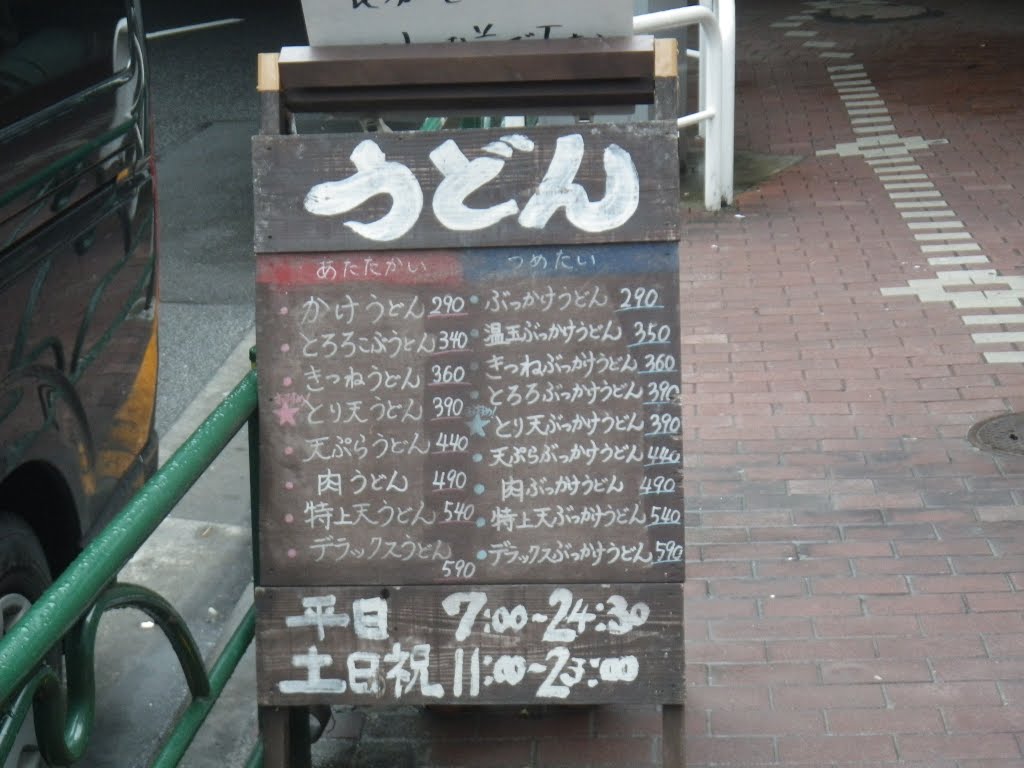 うどん
あたたかい
かけうどん 290
とろろこぶうどん 340
きつねうどん 360
とり天うどん 390
天ぷらうどん 440
肉うどん 490
特上天うどん 540
デラックスうどん 590
つめたい
ぶっかけうどん 290
温玉ぶっかけうどん 350
きつねぶっかけうどん 360
とろろぶっかけうどん 390
とり天ぶっかけうどん 390
天ぷらぶっかけうどん 440
肉ぶっかけうどん 490
特上天ぶっかけうどん 540
デラックスぶっかけうどん 590
平日 7:00~24:30
土日祝 11:00~23:00